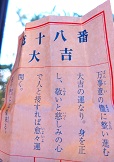 第十八番
大吉
万事意の儘に整い進む
大吉の運なり。身を正
し、敬いと慈しみの心
で人と接すれば愈々運
開く。